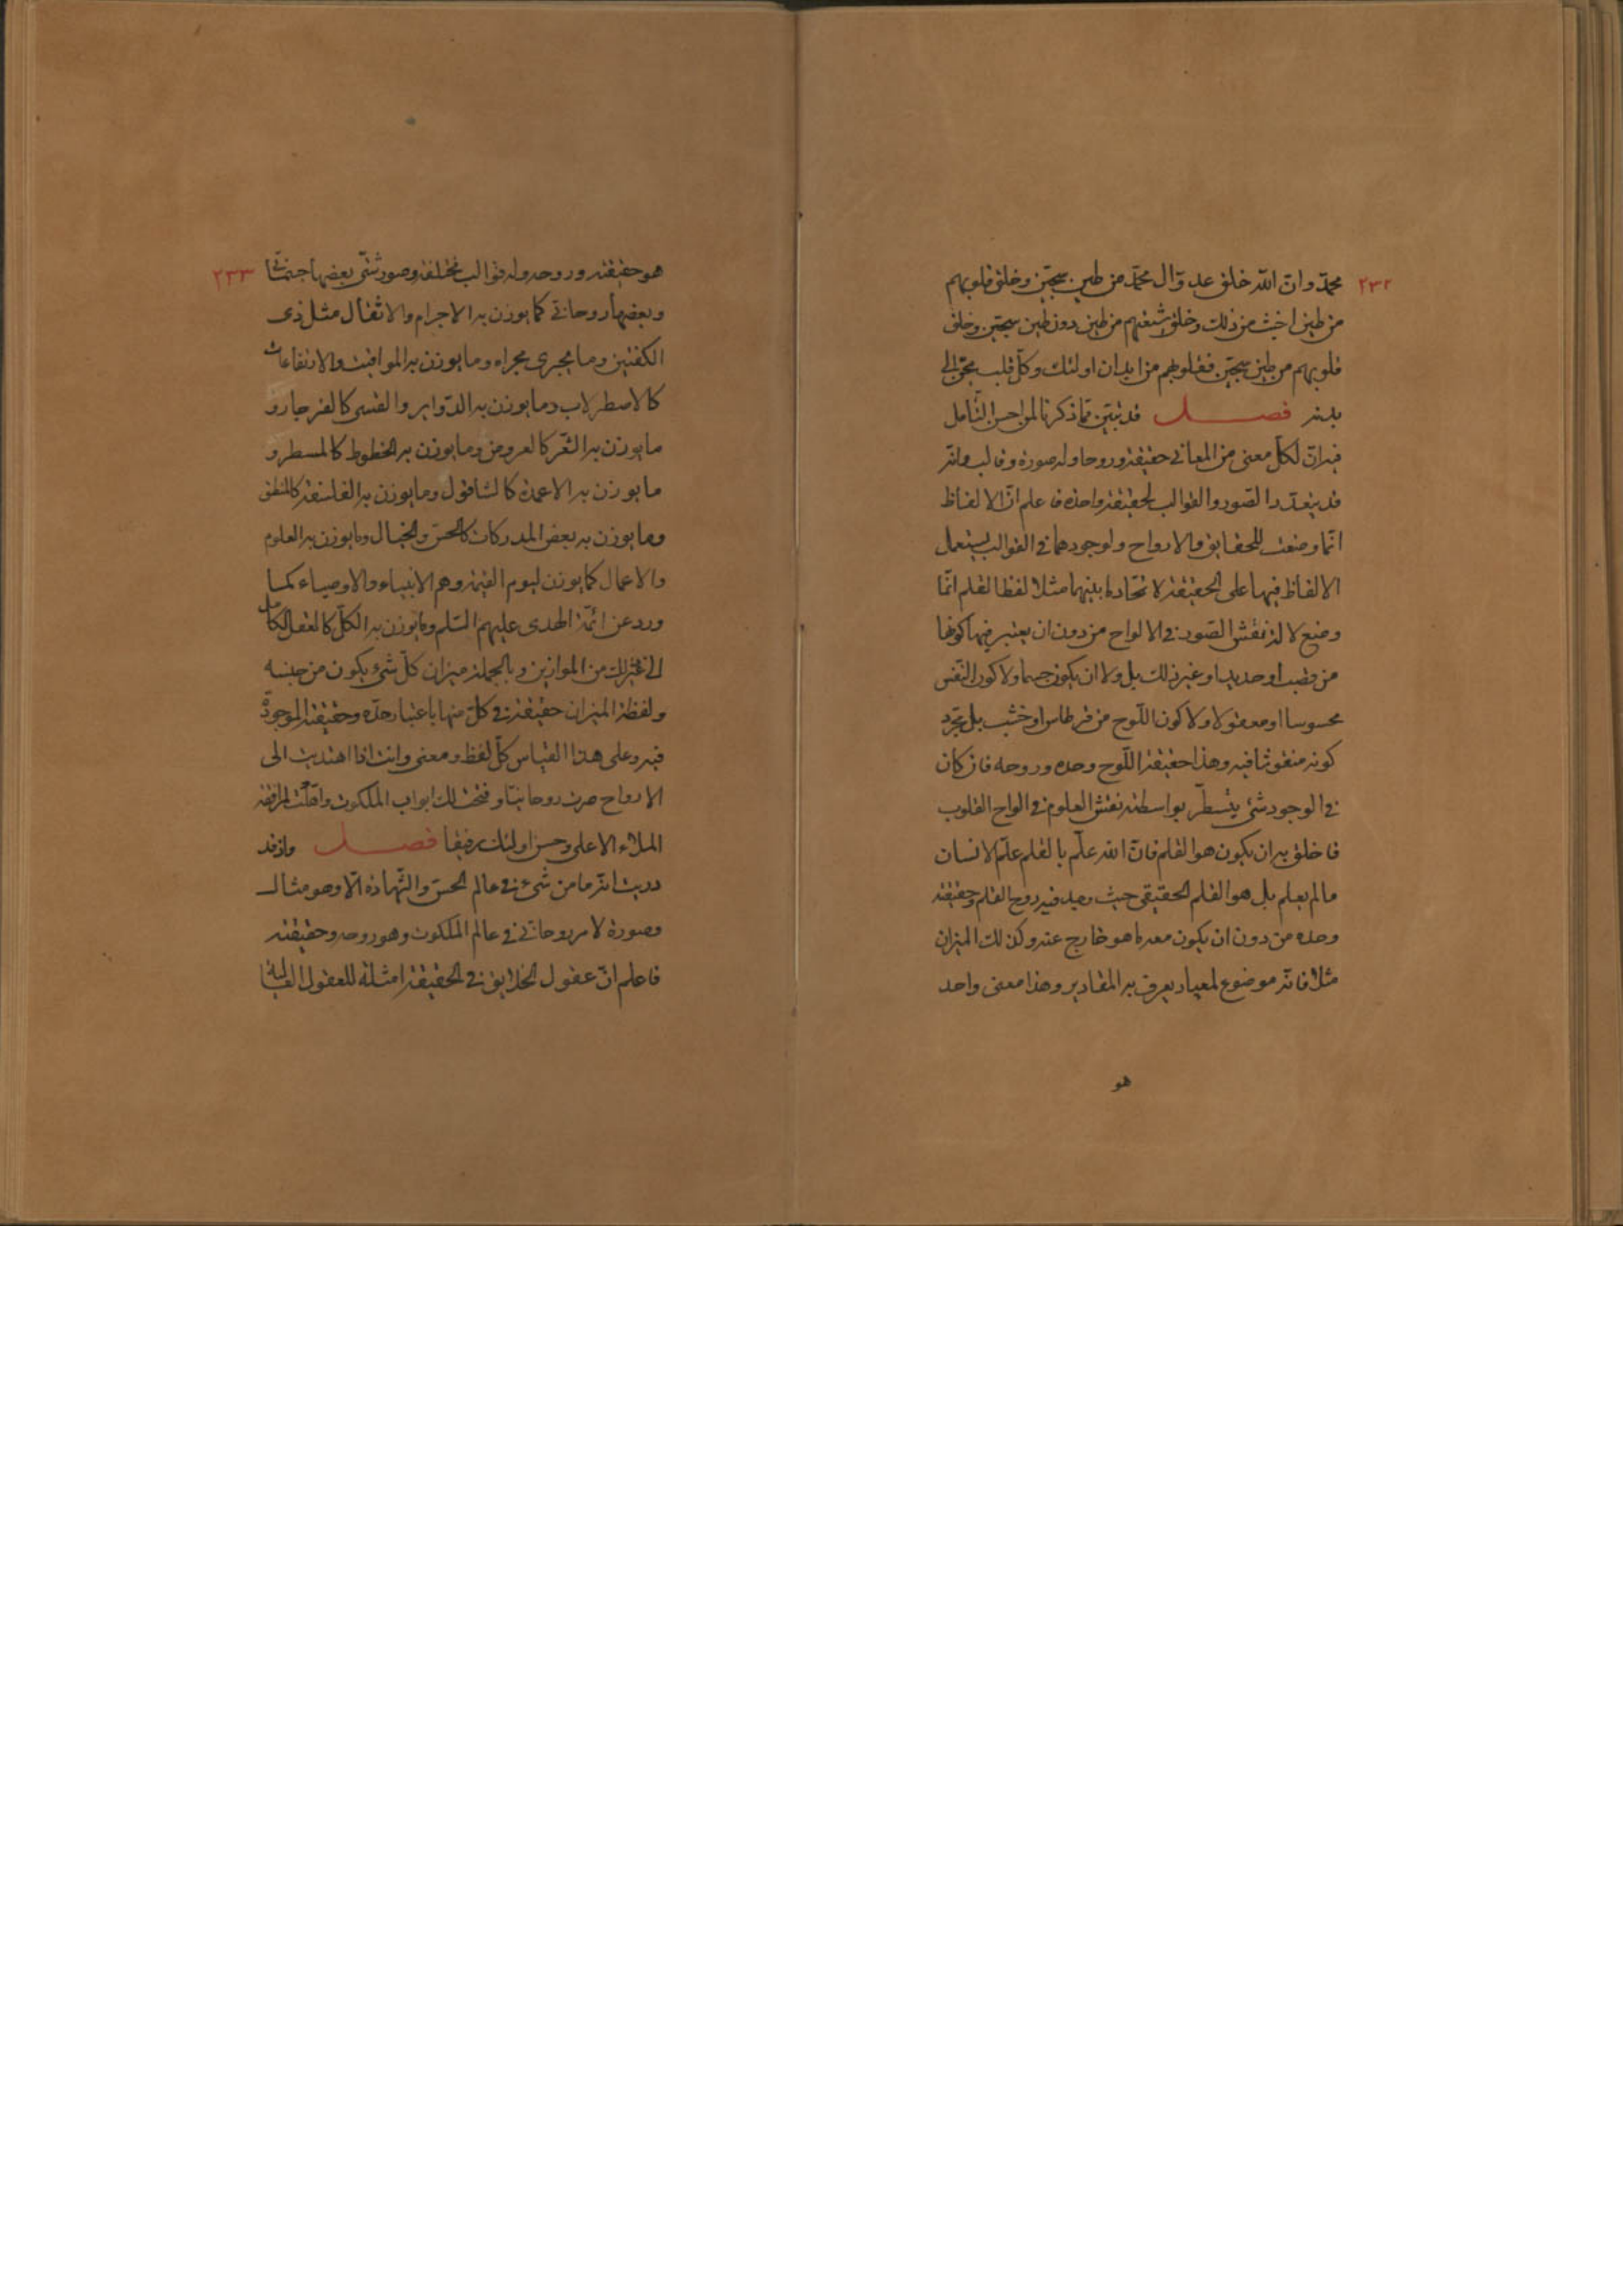 ٢٣٢
محمّد وانّ الله خلق عدو آل محمّد من طين سجّين وخلق قلوبهم
من طين اخبث من ذلك وخلق شيعتهم من طين دون طين سجّين وخلق
قلوبهم من طين سجّين فقلوبهم من ابدان اولئك وكلّ قلب يحنّ الى
بدنه فصل قد تبيّن ممّا ذكرنا لمن احسن التّأمل
فيه انّ لكلّ معنى من المعانى حقيقة وروحا وله صورة وقالب وانّه
قد يتعدّد الصّور والقوالب لحقيقة واحدة فاعلم انّ الالفاظ
انّما وضعت للحقايق والارواح ولوجودهما فى القوالب يستعمل
الالفاظ فيها على الحقيقة لاتّحاد ما بينهما مثلا لفظ القلم انّما
وضع لالة نقش الصّور فى الالواح من دون ان يعتبر فيها كونها
من قصب او حديد او غير ذلك بل ولا ان يكون جسما ولا كون النّقش
محسوسا او معقولا ولا كون اللّوح من قرطاس او خشب بل مجرّد
كونه منقوشا فيه وهذا حقيقة اللّوح وحدّه وروحه فان كان
فى الوجود شئ يتسطّر بواسطته نقش العلوم فى الواح القلوب
فاخلق به ان يكون هو القلم فانّ الله علّم بالقلم علّم الانسان
ما لم يعلم بل هو القلم الحقيقى حيث وجد فيه روح القلم وحقيقته
وحدّه من دون ان يكون معه ما هو خارج عنه وكذلك الميزان
مثلا فانّه موضوع لمعيار يعرف به المقادير وهذا معنى واحد
هو
٢٣٣
هو حقيقته وروحه وله قوالب مختلفة وصور شتّى بعضها جسمانىّ
وبعضها روحانى كما يوزن به الاجرام والاثقال مثل ذى
الكفتين وما يجرى مجراه وما يوزن به المواقيت والارتفاعات
كالاصطرلاب وما يوزن به الدّواير والقسى كالفرجار و
ما يوزن به الشّعر كالعروض وما يوزن به الخطوط كالمسطر و
ما يوزن به الاعمدة كالشاقول وما يوزن به الفلسفة كالمنطق
وما يوزن به بعض المدركات كالحسّ والخيال وما يوزن به العلوم
والاعمال كما يوزن ليوم القيمة وهم الانبياء والاوصياء كما
ورد عن ائمّة الهدى عليهم السّلم وما يوزن به الكلّ كالعقل الكامل
الى غير ذلك من الموازين وبالجملة ميزان كلّ شئ يكون من جنسه
ولفظة الميزان حقيقة فى كلّ منها باعتبار حدّه وحقيقته الموجودة
فيه وعلى هذا القياس كلّ لفظ ومعنى وانت اذا اهتديت الى
الارواح صرت روحانيّا وفتحت لك ابواب الملكوت واهّلت لمرافقة
الملاء الاعلى وحسن اولئك رفيقا فصل واذ قد
دريت انّه ما من شئ فى عالم الحسّ والشّهادة الّا وهو مثال
وصورة لامر روحانى فى عالم الملكوت وهو روحه وحقيقته
فاعلم انّ عقول الخلايق فى الحقيقة امثلة للعقول العالية